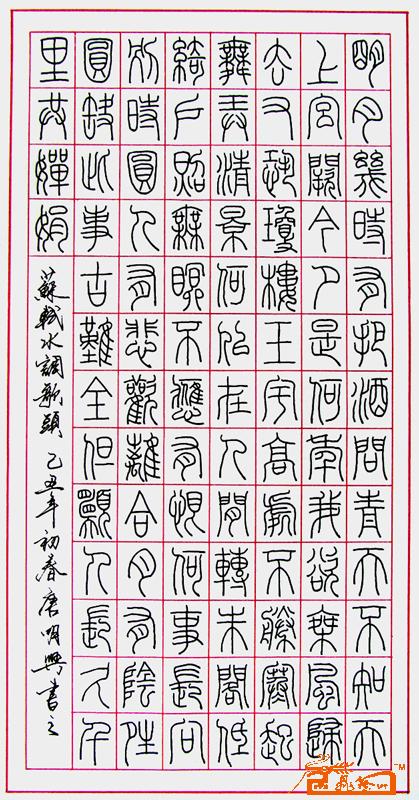 明月幾時有把酒問青天不知天
上宮闕今夕是何年我欲乘風歸
去又恐瓊樓玉宇高處不勝寒起
舞弄清景何似在人間轉朱閣低
綺戶照無眠不應有恨何事長向
別時圓人有悲歡離合月有陰晴
圓缺此事古難全但願人長久千
里共嬋娟
蘇軾水調歌頭 己丑年初春唐明興書之